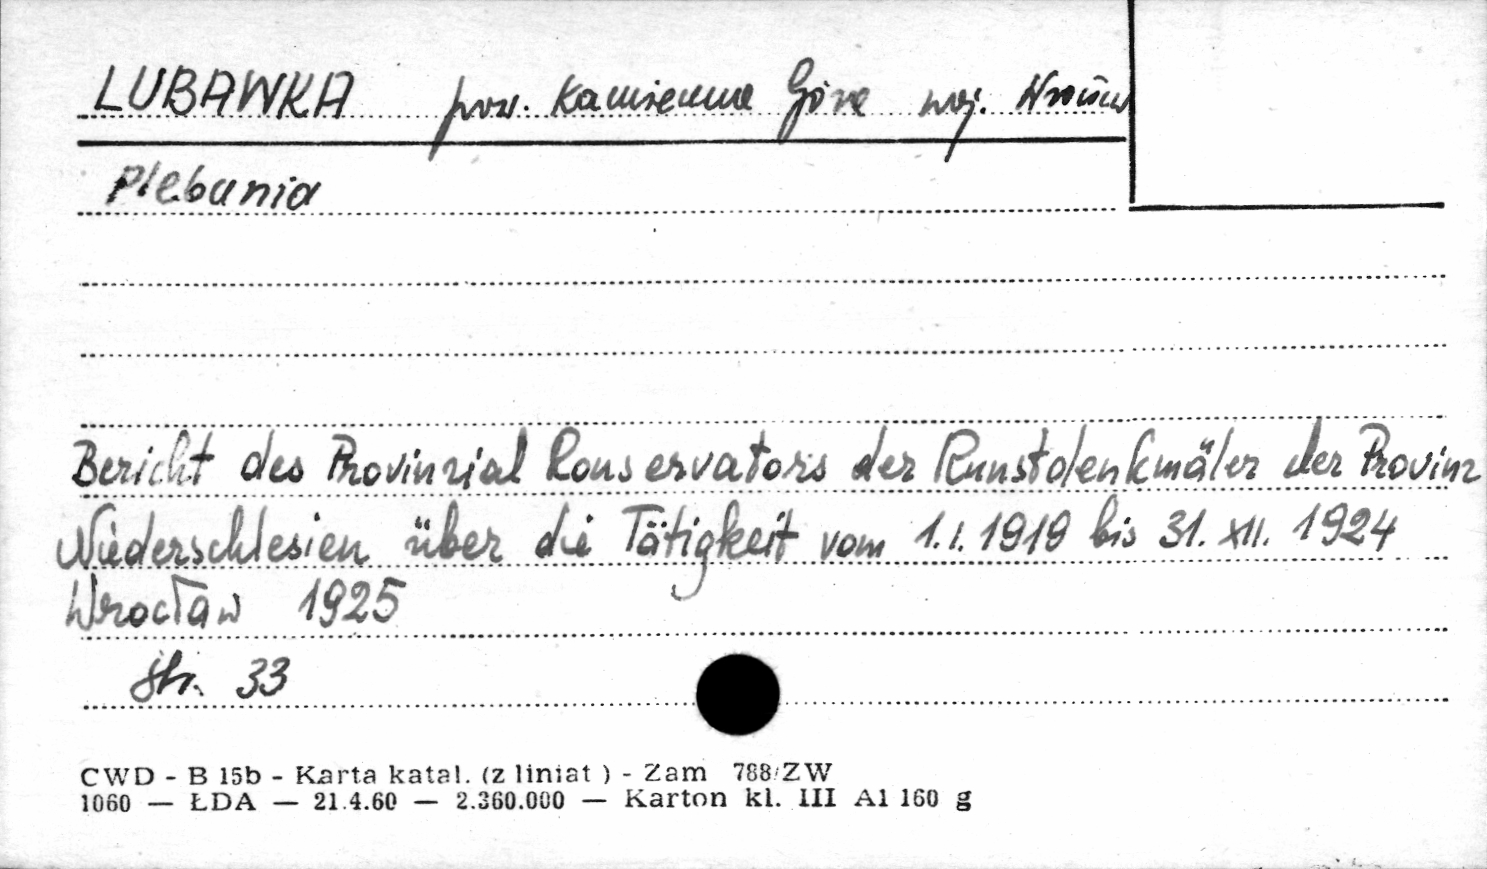 LUBAWKA pow. Kamienna Góra woj. Wrocław
Plebania
Bericht des Provinzial Konservators der Kunstdenkmäler der Provinz
Niederschlesien über die Tätigkeit vom 1.I.1919 bis 31.XII.1924
Wrocław 1925
Str. 33
CWD - B 15b - Karta katal. (z liniat ) - Zam 788/ZW
1060 — ŁDA — 21.4.60 — 2.360.000 — Karton kl. III A1 160 g